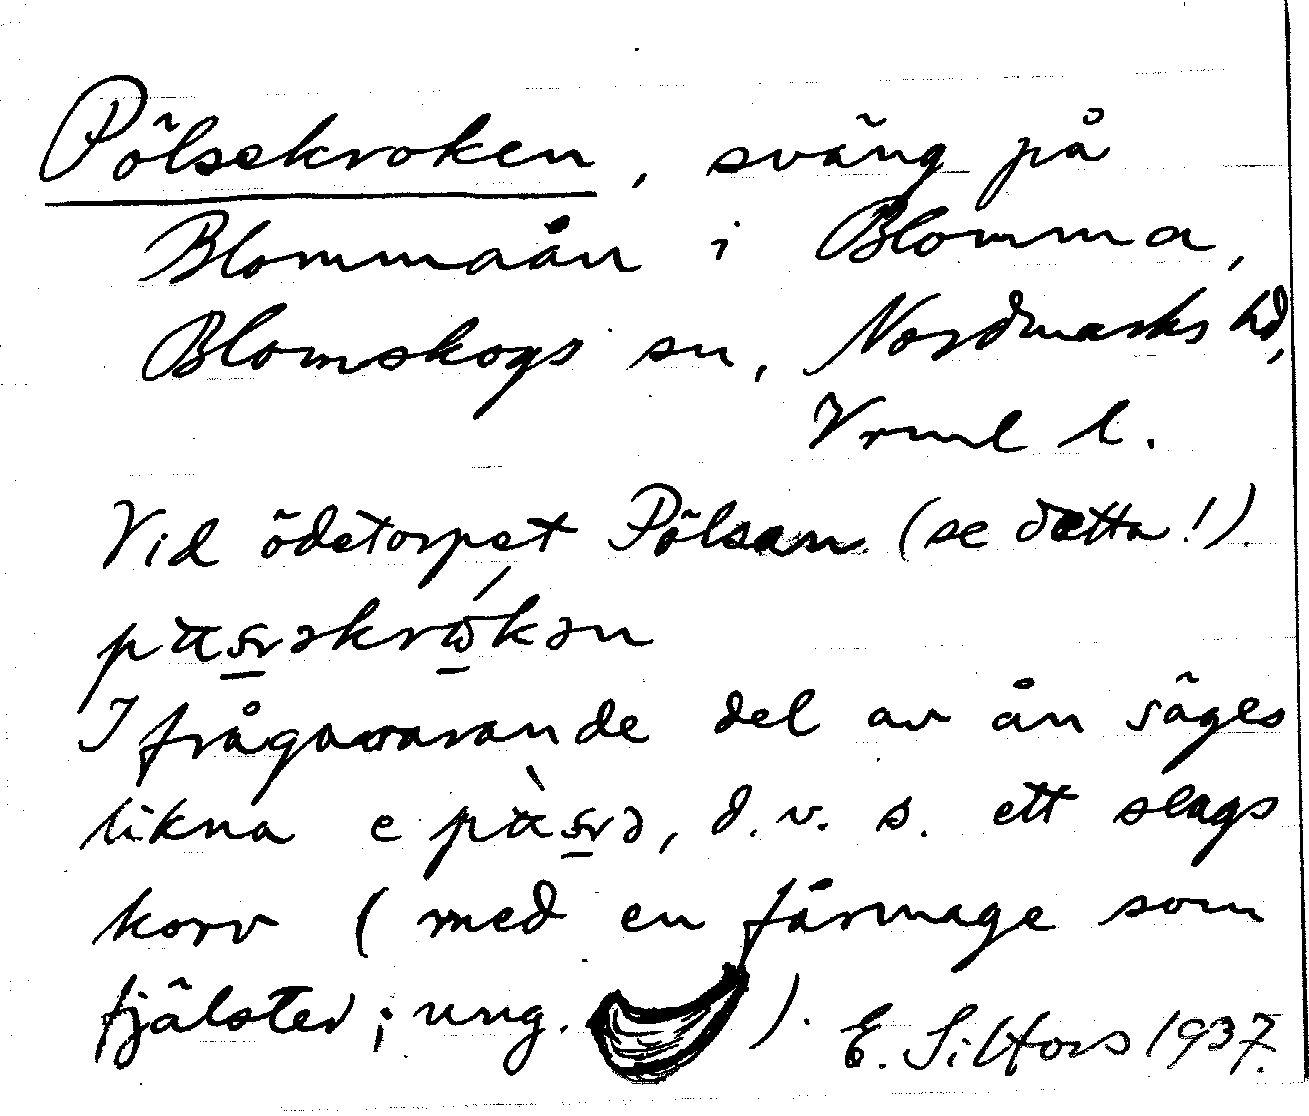 Pölsekroken, sväng på
Blommaån i Blomma,
Blomskogs sn, Nordmarks hd,
Vrml l.
Vid ödetorpet Pölsan (se detta!).
I frågavarande del av ån säges
likna e d.v.s. ett slags
korv (med en fårmage som
fjälster; ung. ). E. Silfors 1937.